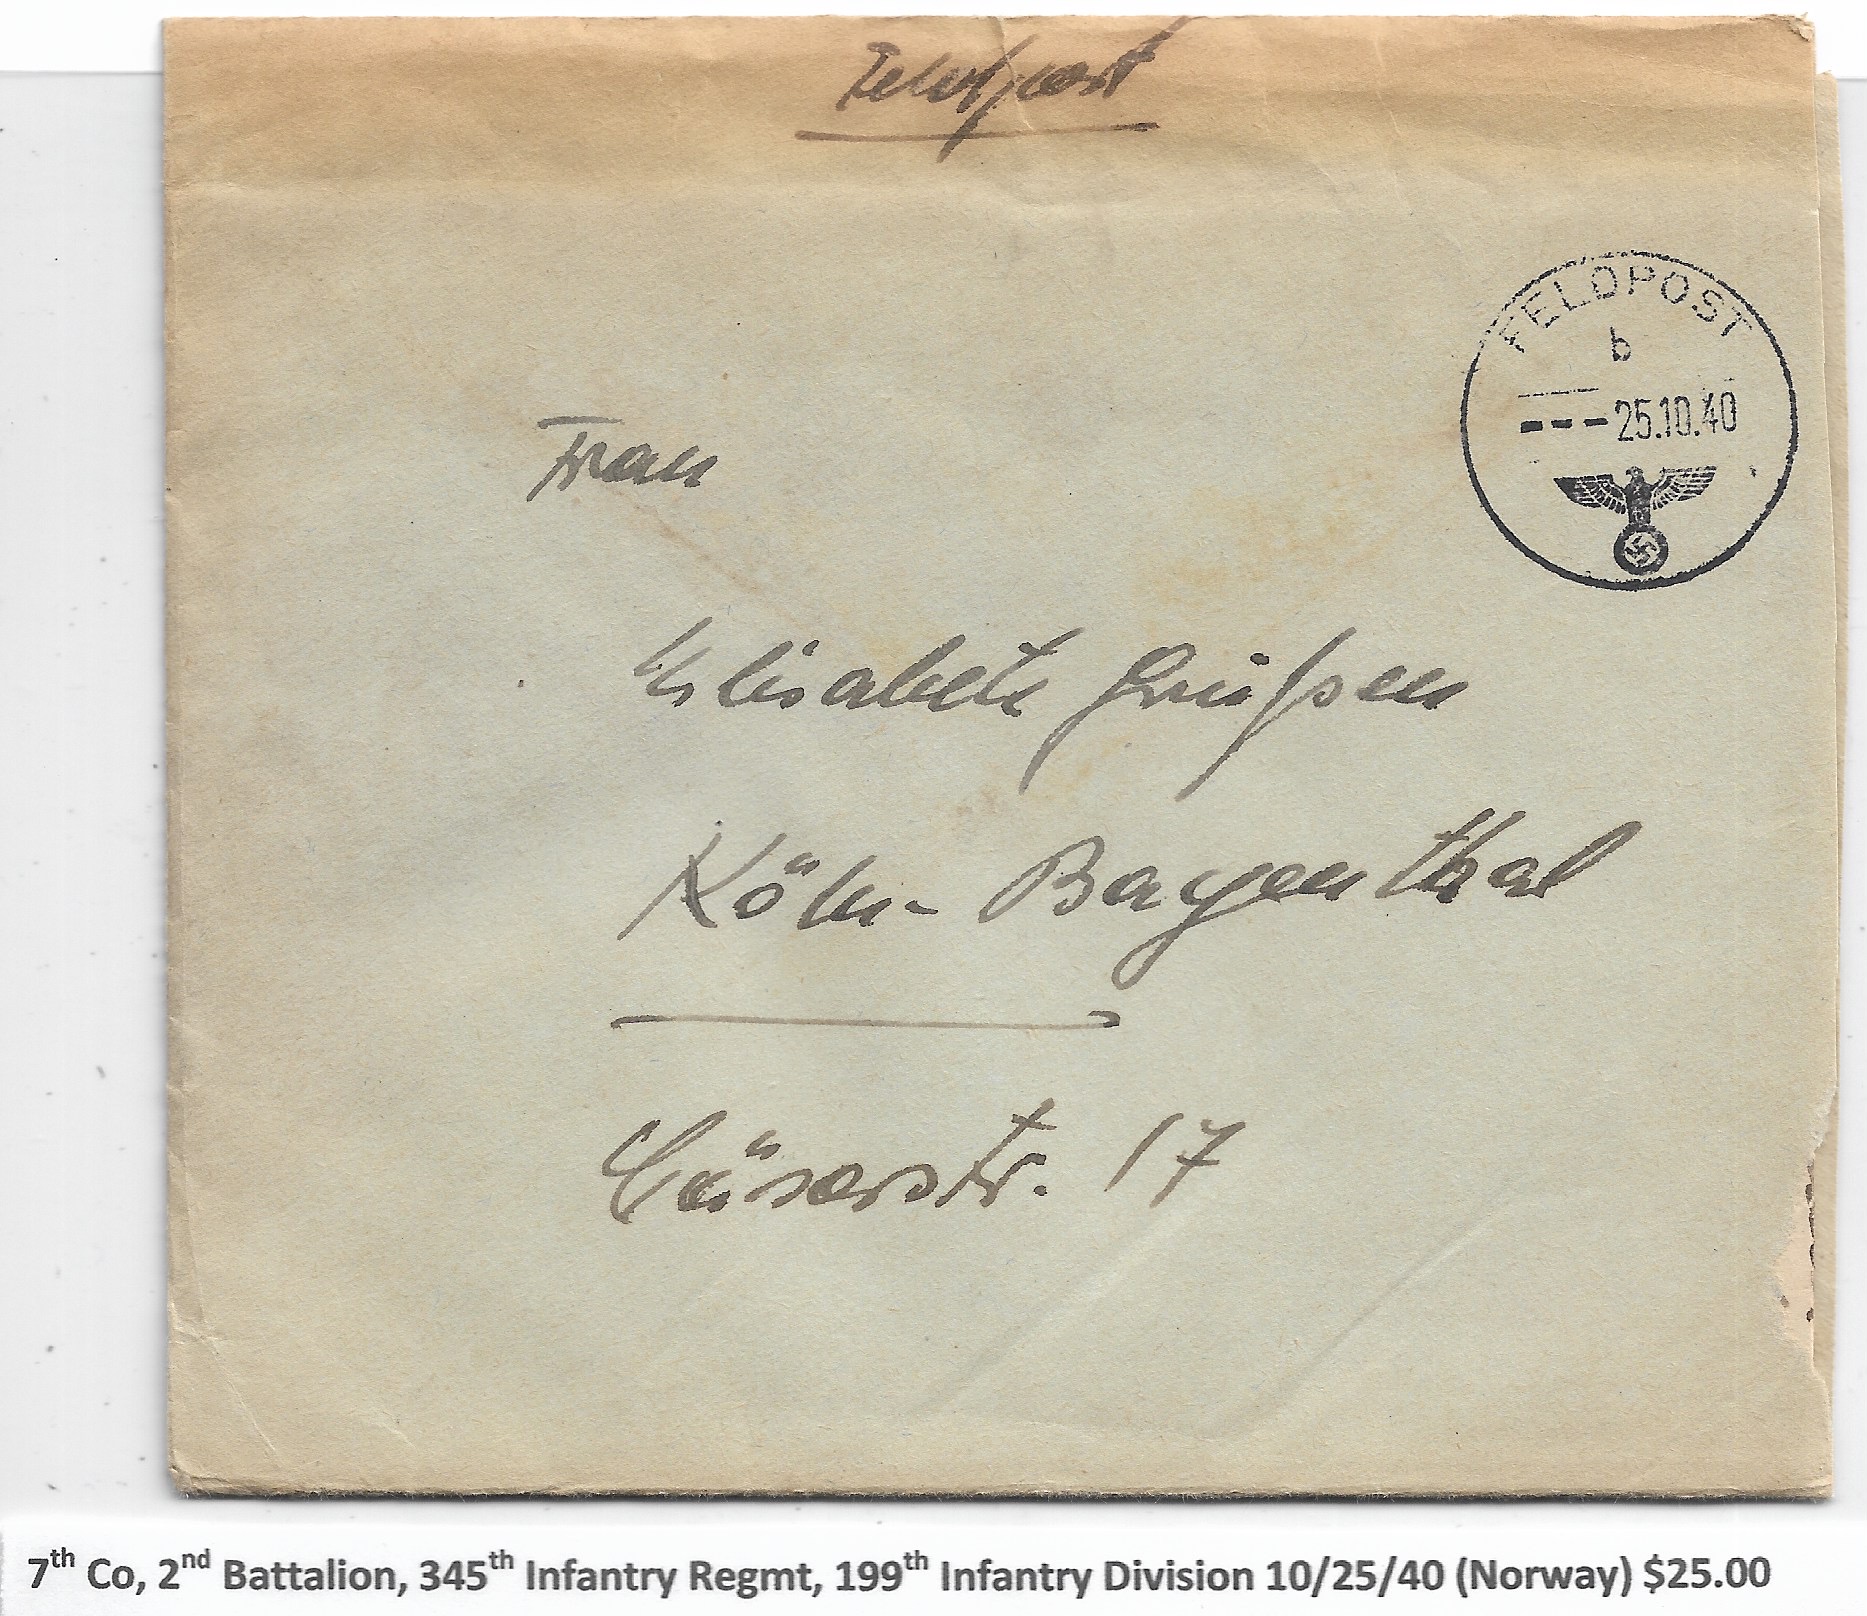 Feldpost
FELDPOST
b
--- 25.10.40
Frau
Elisabeth Grüßen
Köln-Bayenthal
Cäsarstr. 17
7th Co, 2nd Battalion, 345th Infantry Regmt, 199th Infantry Division 10/25/40 (Norway) $25.00